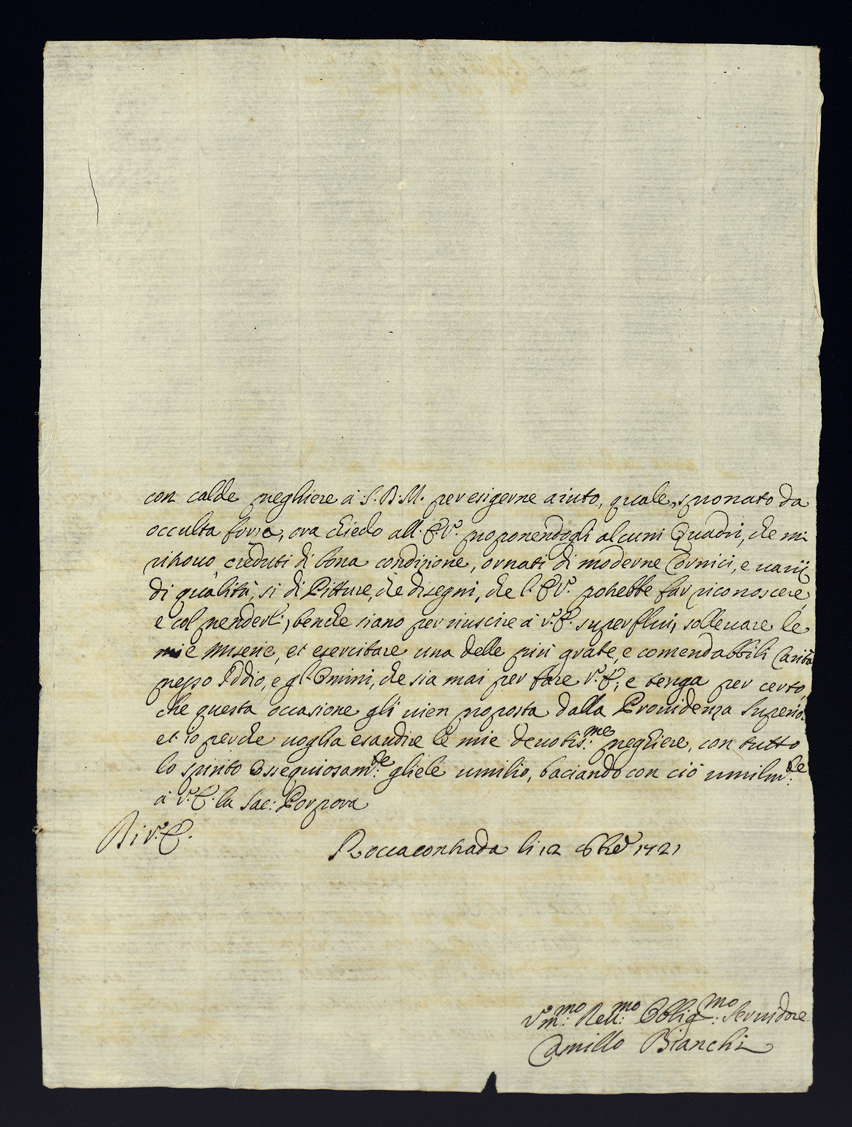 con calde preghiere à S. B. M. per esigerne aiuto, quale, spronato da
occulta forza, ora chiedo all' E. V. proponendogli alcuni Quadri, che mi
ritrovo creduti di bona condizione, ornati di moderne Cornici, e varii
di qualità, si di Pitture, che disegni, che l' E. V. potrebbe far riconoscere
e col prenderli, benche siano per riuscire à V. E. superflui, sollevare le
mie miserie, et esercitare una delle più grate, e comendabbili Carità
presso Iddio, e gl' Omini, che sia mai per fare V. E., e tenga per certo,
che questa occasione gli vien proposta dalla Providenza Superio:
et io perche voglia esaudire le mie devotis.me preghiere, con tutto
lo spirito Ossequiosam.te gliele umilio, baciando con ciò umilm.te
à V. E. la Sac: Porpora
Di V. E.
Roccacontrada li 12 6bre 1721
V.mo Dev.mo Oblig.mo Servidore
Camillo Bianchi